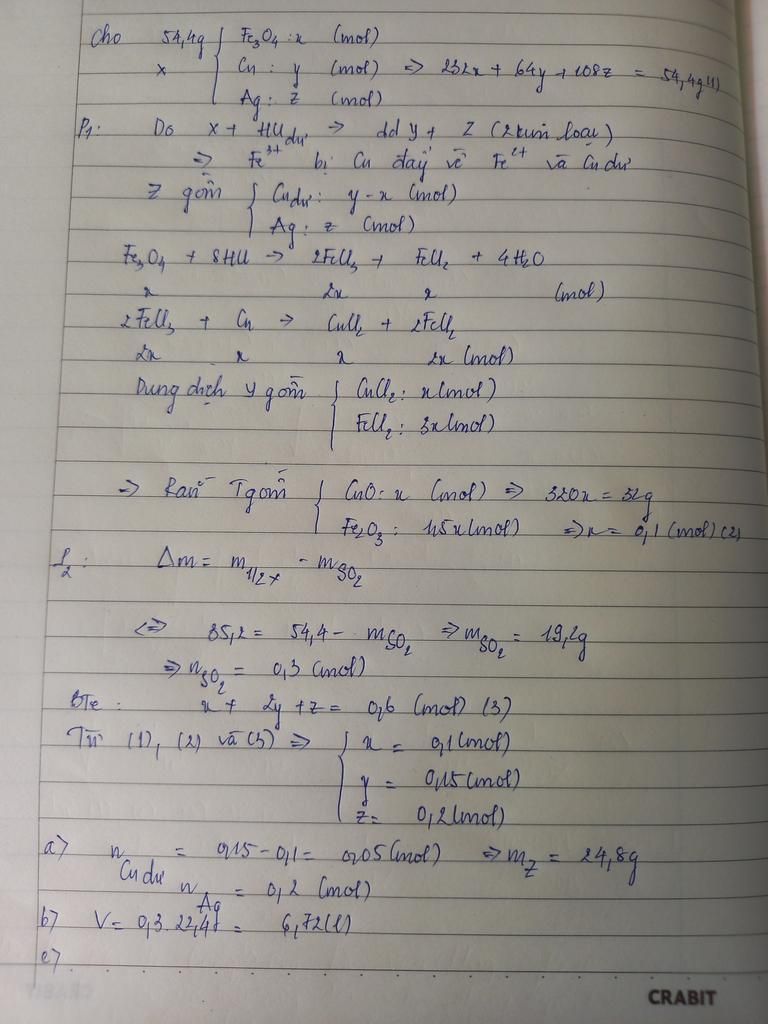 Cho 54,4g { Fe3O4 : x (mol)
X { Cu : y (mol) => 232x + 64y + 108z = 54,4g (1)
{ Ag : z (mol)
P1: Do X + HCl dư => dd Y + Z (2 kim loại)
=> Fe3+ bị Cu đẩy về Fe2+ và Cu dư
Z gồm { Cu dư : y - x (mol)
{ Ag : z (mol)
Fe3O4 + 8HCl -> 2FeCl3 + FeCl2 + 4H2O
x 2x x (mol)
2FeCl3 + Cu -> CuCl2 + 2FeCl2
2x x x 2x (mol)
Dung dịch Y gồm { CuCl2 : x (mol)
{ FeCl2 : 3x (mol)
=> Rắn T gồm { CuO : x (mol) => 320x = 32g
{ Fe2O3 : 1,5x (mol) => x = 0,1 (mol) (2)
P2: Δm = m1/2X - mSO2
<=> 35,2 = 54,4 - mSO2 => mSO2 = 19,2g
=> nSO2 = 0,3 (mol)
BTe : x + 2y + z = 0,6 (mol) (3)
Từ (1), (2) và (3) => { x = 0,1 (mol)
{ y = 0,15 (mol)
{ z = 0,2 (mol)
a> nCu dư = 0,15 - 0,1 = 0,05 (mol) => mZ = 24,8g
nAg = 0,2 (mol)
b> V = 0,3. 22,4 = 6,72 (l)
c>
CRABIT